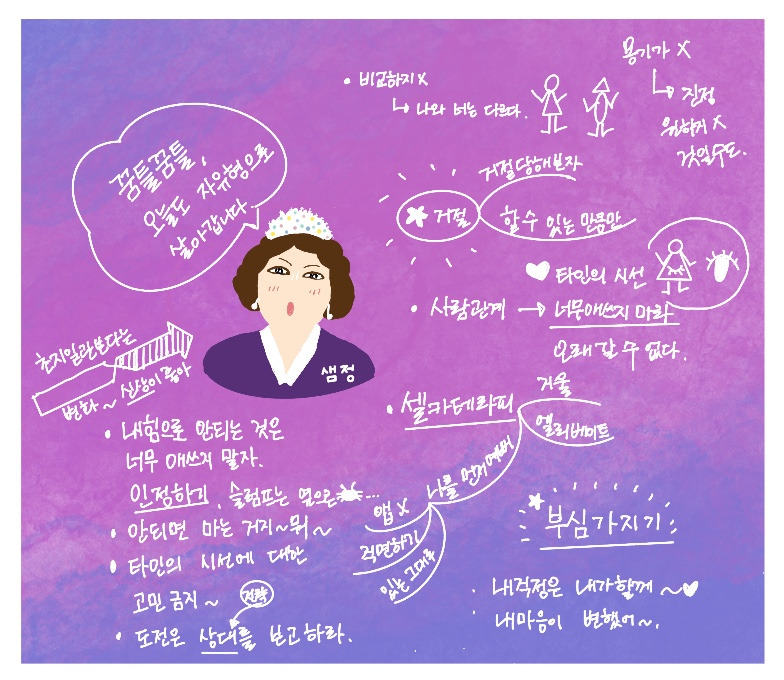 꿈틀꿈틀,
오늘도 자유형으로
살아갑니다
샘정
초지일관보다는
변화~ 신상이 좋아
• 내힘으로 안되는 것은
너무 애쓰지 말자.
인정하기, 슬럼프는 옆으로 ...
• 안되면 마는 거지~뭐~
• 타인의 시선에 대한
고민 금지~
전략
• 도전은 상대를 보고하라.
• 비교하지 X
나와 너는 다르다.
용기가 X
진정
원하지 X
것일수도.
거절당해본자
거절
할 수 있는 만큼만
타인의 시선
• 사람관계 → 너무애쓰지 마라
오래 갈 수 없다.
• 셀카테라피
거울
엘리베이트
나를 먼저 예뻐
앱 X
직면하기
있는 그대로
부심가지기
내걱정은 내가할께~
내마음이 변했어~.